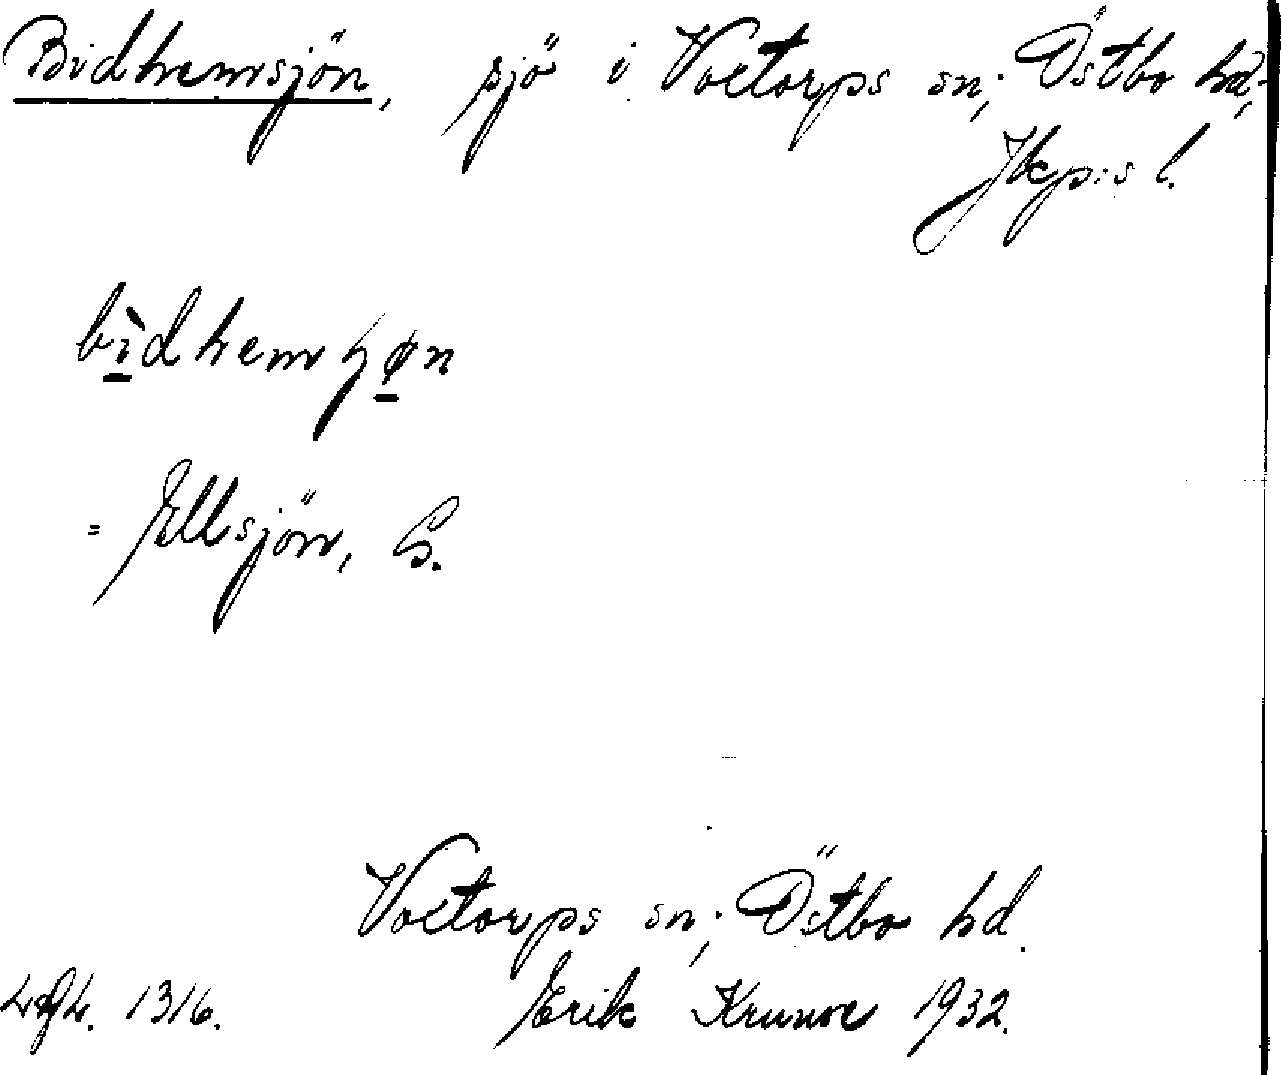 Bidhemsjön, sjö i Voxtorps sn; Östbo hd,
Jkp:s l.
bìdhemɧøn
= Ellsjön, S.
Voxtorps sn; Östbo hd.
Erik Krune 1932.
1316.